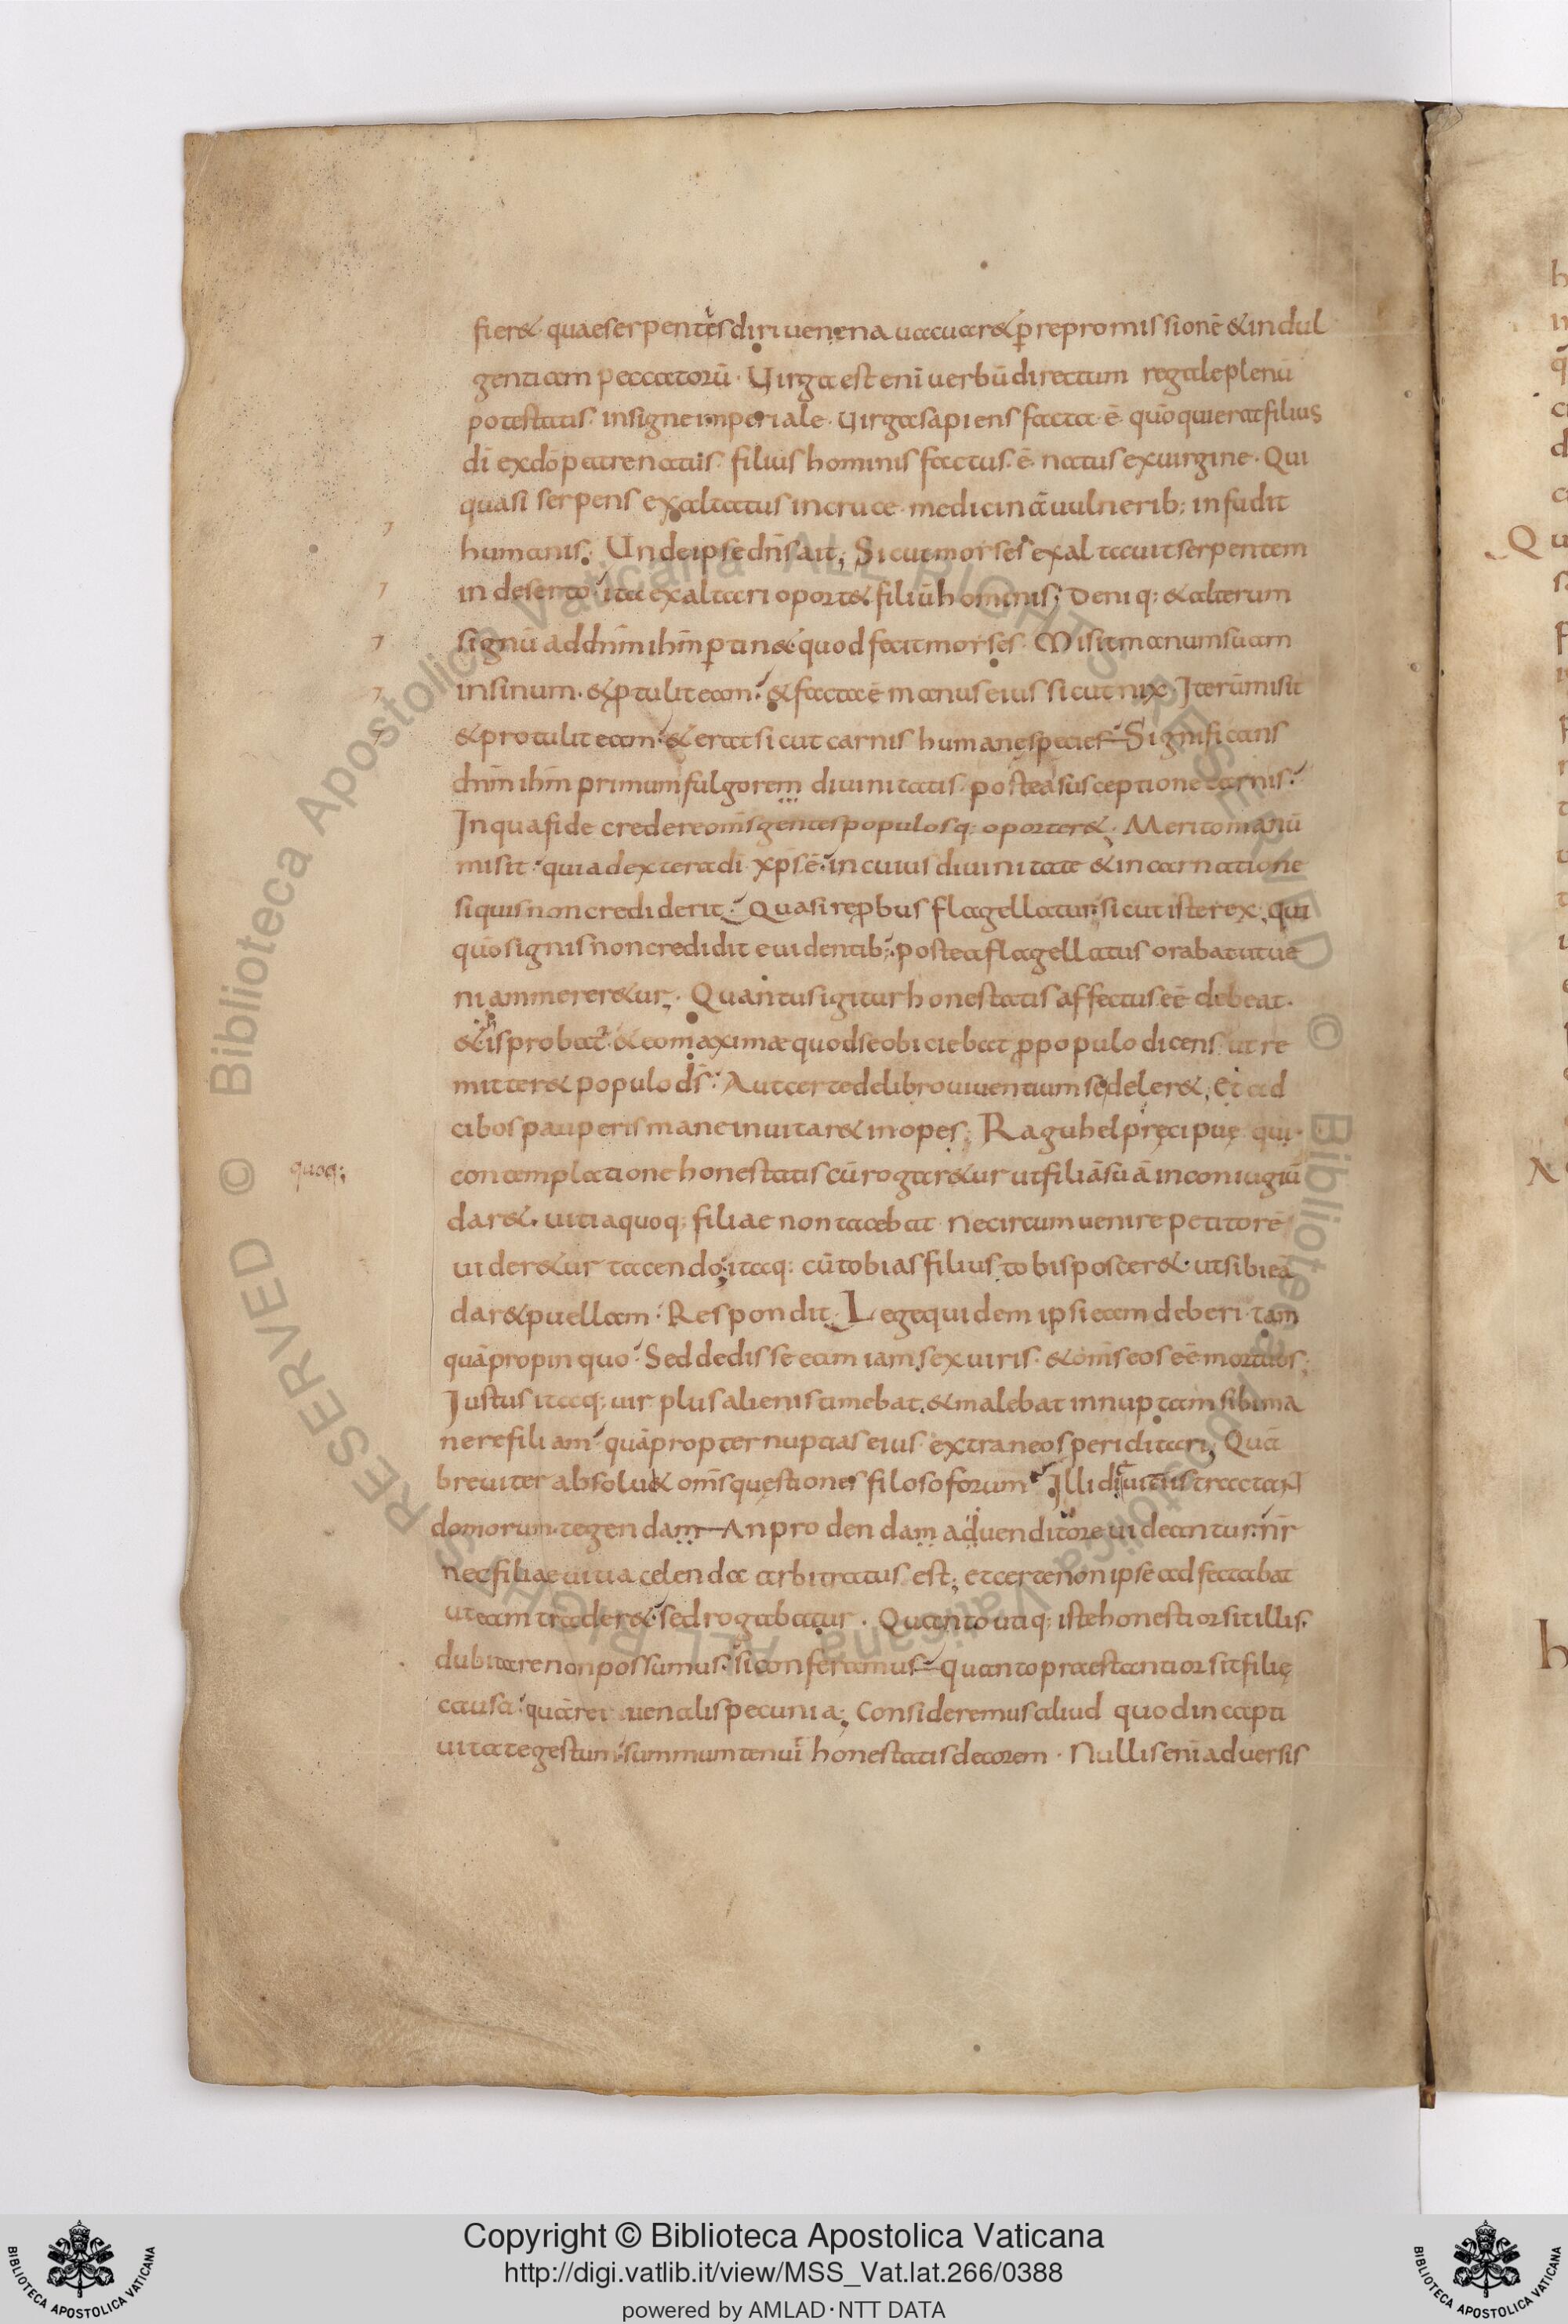 fier& quaeserpentesdiri uenena uacuar& p̄repromissionē &indul
gentiam peccatorū · Uirga est eni uerbū directum regale plenū
potestatis · insigne imperiale · uirga sapiens facta ē quō qui erat filius
dī exdō patre natus · filius hominis factus · ē · natus exuirgine · Qui
quasi serpens exaltatus incruce · medicinā uulnerib; infudit
humanis; Undeipsednsait; Sicut morses exaltauit serpentem
in deserto ita exaltari oport& filiū hominis; Deniq; &alterum
signū addnm ihm p̄tin& quod fecit morses · Misit manum suam
insinum · &p̄tulit eam · &facta ē manus eius sicut nix Iterū misit
&protulit eam · &erat sicut carnis humanę species Significans
dnm ihm primum fulgorem diuinitatis · postea susceptione carnis ·
Inquafide credere oms gentes populosq; oporter& · Merito manū
misit · quia dextera dī xps ē · in cuius diuinitate & incarnatione
siquis non crediderit · Quasi repbus flagellatur sicut iste rex · qui
quō signis non credidit euidentib; postea flagellatus orabat ut ue
niam merer&ur · Quantus igitur honestatis affectus eē debeat ·
&is probat · &eo maximæ quod se obiciebat p̄ populo dicens · ut re
mitter& populo ds · Aut certe delibro uiuentium se deler&; Et ad
cibos pauperis mane inuitar& inopes; Raguhel pręcipuę qui ·
contemplatione honestatis cū rogar&ur ut filiā suā in coniugiū
quoq;
dar& · uitia quoq; filiae non tacebat · Ne circumuenire petitorē
uider&ur tacendo; itaq; cū tobias filius tobis poscer& · ut sibi eā
dar& puellam · Respondit · Lege quidem ipsi eam deberi · tam
quā propinquo · Sed dedisse eam iam sex uiris · & oms eos eē mortuos;
Iustus itaq; uir plus alienis timebat · & malebat innuptam sibi ma
nere filiam · quā propter nuptias eius extraneos periclitari; Quā
breuiter absolu& oms questiones filosoforum Illi
domorum · tegendam An prodendam a uenditore uideantur · nr
nec filiae uitia celenda arbitratus est; et certe non ipse adfectabat
ut eam trader& · sed rogabatur · Quanto utiq; iste honestior sit illis ·
dubitare non possumus · si conferamus quanto praestantior sit filię
causa · quā rei uenalis pecunia; Consideremus aliud quod in capti
uitate gestum · summum tenuī honestatis decorem · Nullis eni aduersis
Copyright © Biblioteca Apostolica Vaticana
http://digi.vatlib.it/view/MSS_Vat.lat.266/0388
powered by AMLAD·NTT DATA